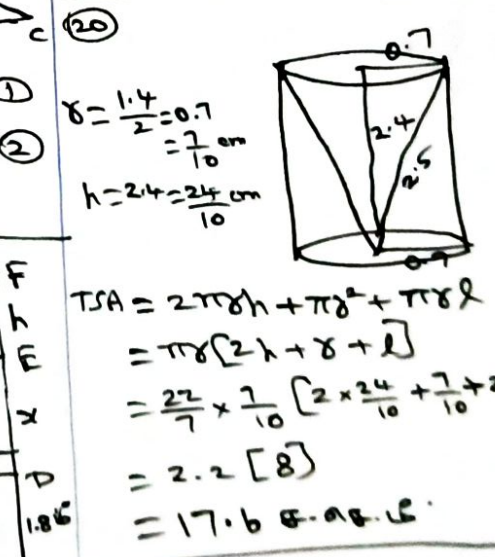 C (20)
①
②
r = 1.4/2 = 0.7
= 7/10 cm
h = 2.4 = 24/10 cm
0.7
2.4
2.5
0.7
TSA = 2πrh + πr² + πrl
= πr[2h + r + l]
= 22/7 × 7/10 [2 × 24/10 + 7/10 + 2
= 2.2 [8]
= 17.6
F
h
E
x
D
1.8